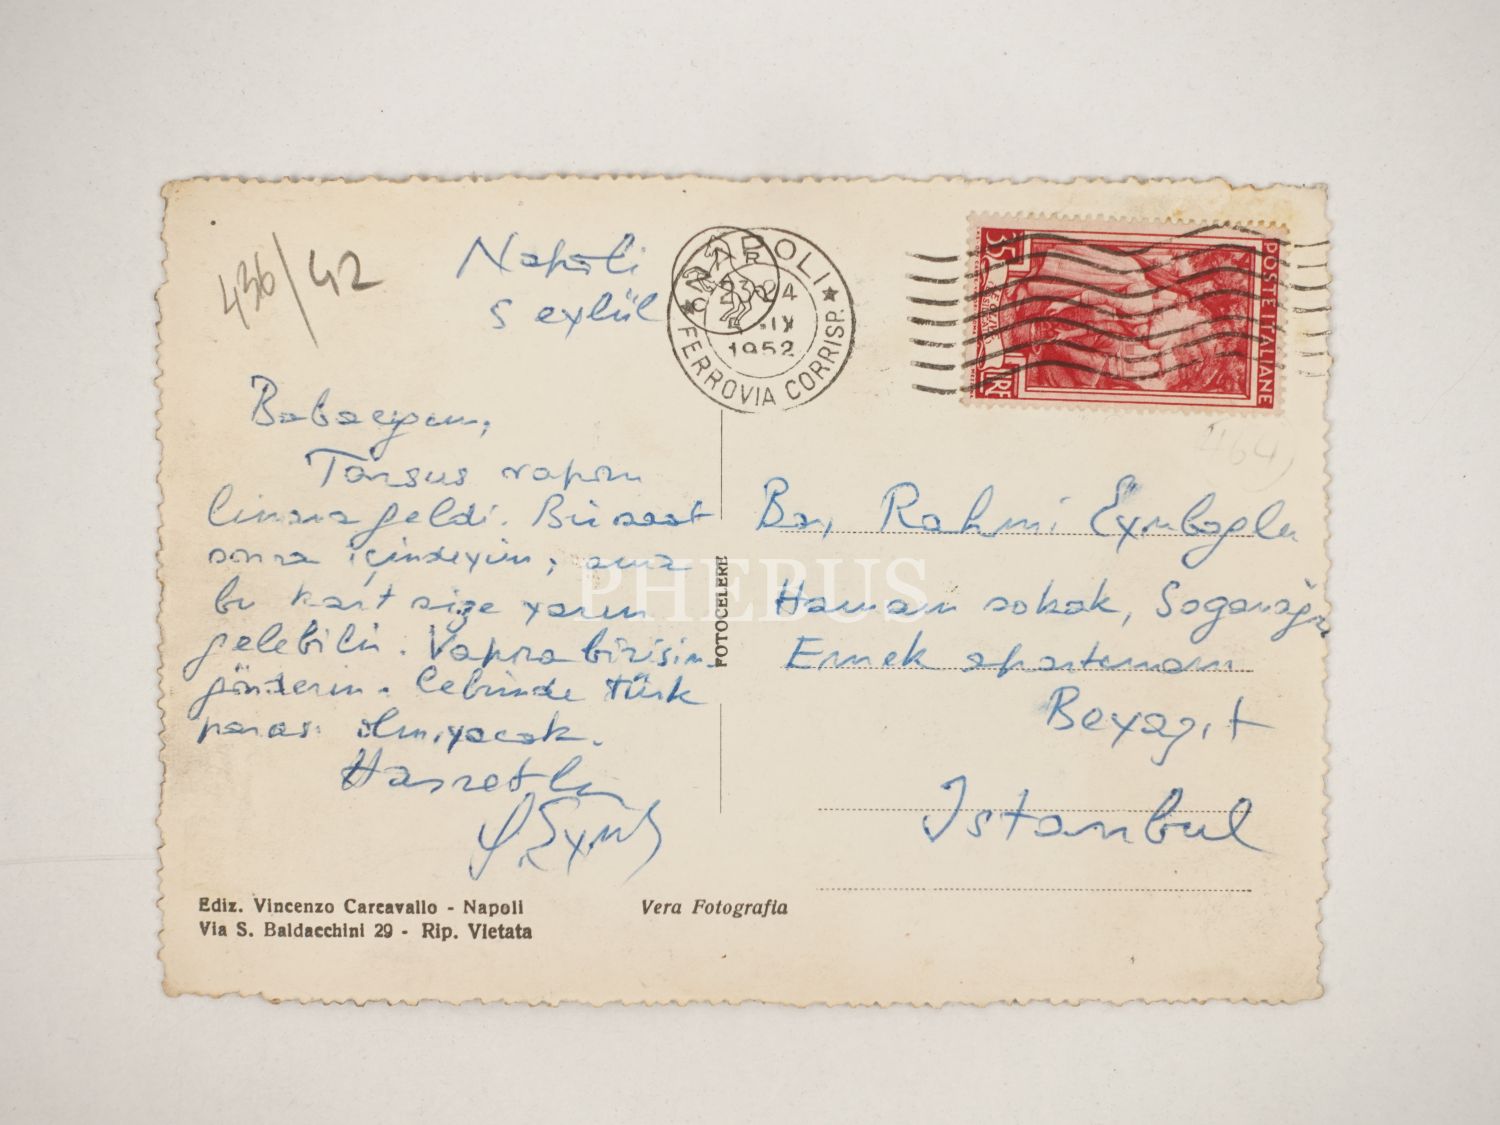 436/42
Napoli
5 eylül
NAPOLI
23-24
5.IX
1952
FERROVIA CORRISP.
POSTE ITALIANE
35
LIRE
Babacığım,
Tarsus vapuru
limana geldi. Bir saat
sonra içindeyim; ama
bu kart size yarın
gelebilir. Vapura birisini
gönderin. Cebimde türk
parası olmıyacak.
Hasretle
Bay Rahmi Eyuboğlu
Hamam sokak, Soğanağa
Emek apartmanı
Beyazıt
Istanbul
FOTOCELERE
PHEBUS
Ediz. Vincenzo Carcavallo - Napoli
Via S. Baldacchini 29 - Rip. Vietata
Vera Fotografia